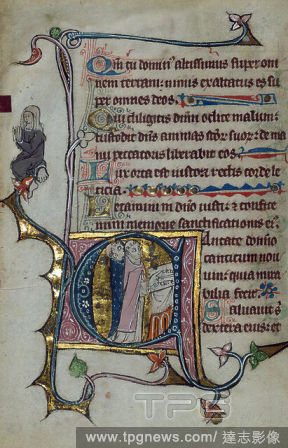 Qm tu domin' altissimus super om
nem terram: nimis exaltatus es su
per omnes deos.
Qui diligitis dnm odite malum:
custodit dns animas scor suor: de ma
nu peccatoris liberabit eos.
Lux orta est iusto: et rectis corde le
ticia.
Letamini iusti in dno: et confite
mini memorie sanctificationis ei'.
Cantate domino
canticum nou
um: quia mira
bilia fecit.
Saluauit s'
dextera eius: et
TPG
www.tpgnews.com / 達志影像